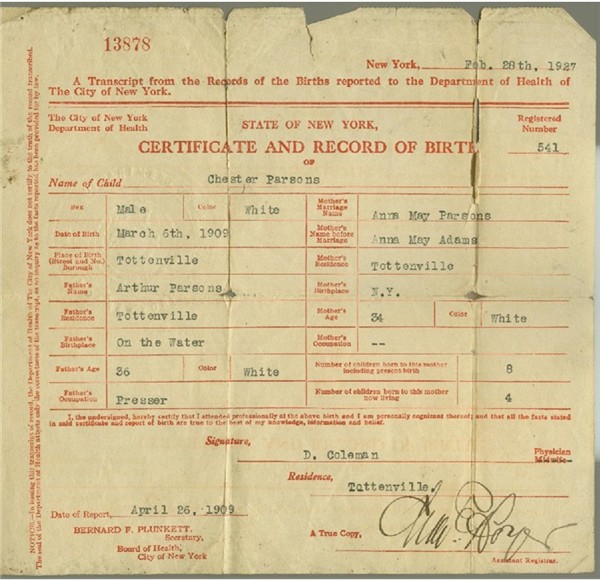 13878
New York, Feb. 28th, 1927
A Transcript from the Records of the Births reported to the Department of Health of
The City of New York.
The City of New York
Department of Health
STATE OF NEW YORK,
Registered
Number
CERTIFICATE AND RECORD OF BIRTH
541
OF
Name of Child Chester Parsons
Sex Male Color White Mother's Marriage Name Anna May Parsons
Date of Birth March 6th, 1909 Mother's Name before Marriage Anna May Adams
Place of Birth (Street and No.) Borough Tottenville Mother's Residence Tottenville
Father's Name Arthur Parsons Mother's Birthplace N.Y.
Father's Residence Tottenville Mother's Age 34 Color White
Father's Birthplace On the Water Mother's Occupation --
Father's Age 36 Color White Number of children born to this mother including present birth 8
Father's Occupation Presser Number of children born to this mother now living 4
I, the undersigned, hereby certify that I attended professionally at the above birth and I am personally cognizant thereof; and that all the facts stated
in said certificate and report of birth are true to the best of my knowledge, information and belief.
Signature,
D. Coleman Physician
Midwife
Residence,
Tottenville.
Date of Report, April 26, 1909
BERNARD F. PLUNKETT,
Secretary,
Board of Health,
City of New York
A True Copy,
Assistant Registrar.
NOTICE.—In issuing this transcript of record, the Department of Health of The City of New York does not certify to the truth of the record transcribed.
The seal of the Department of Health attests only the correctness of the transcript, as no inquiry as to the facts reported has been provided for by law.